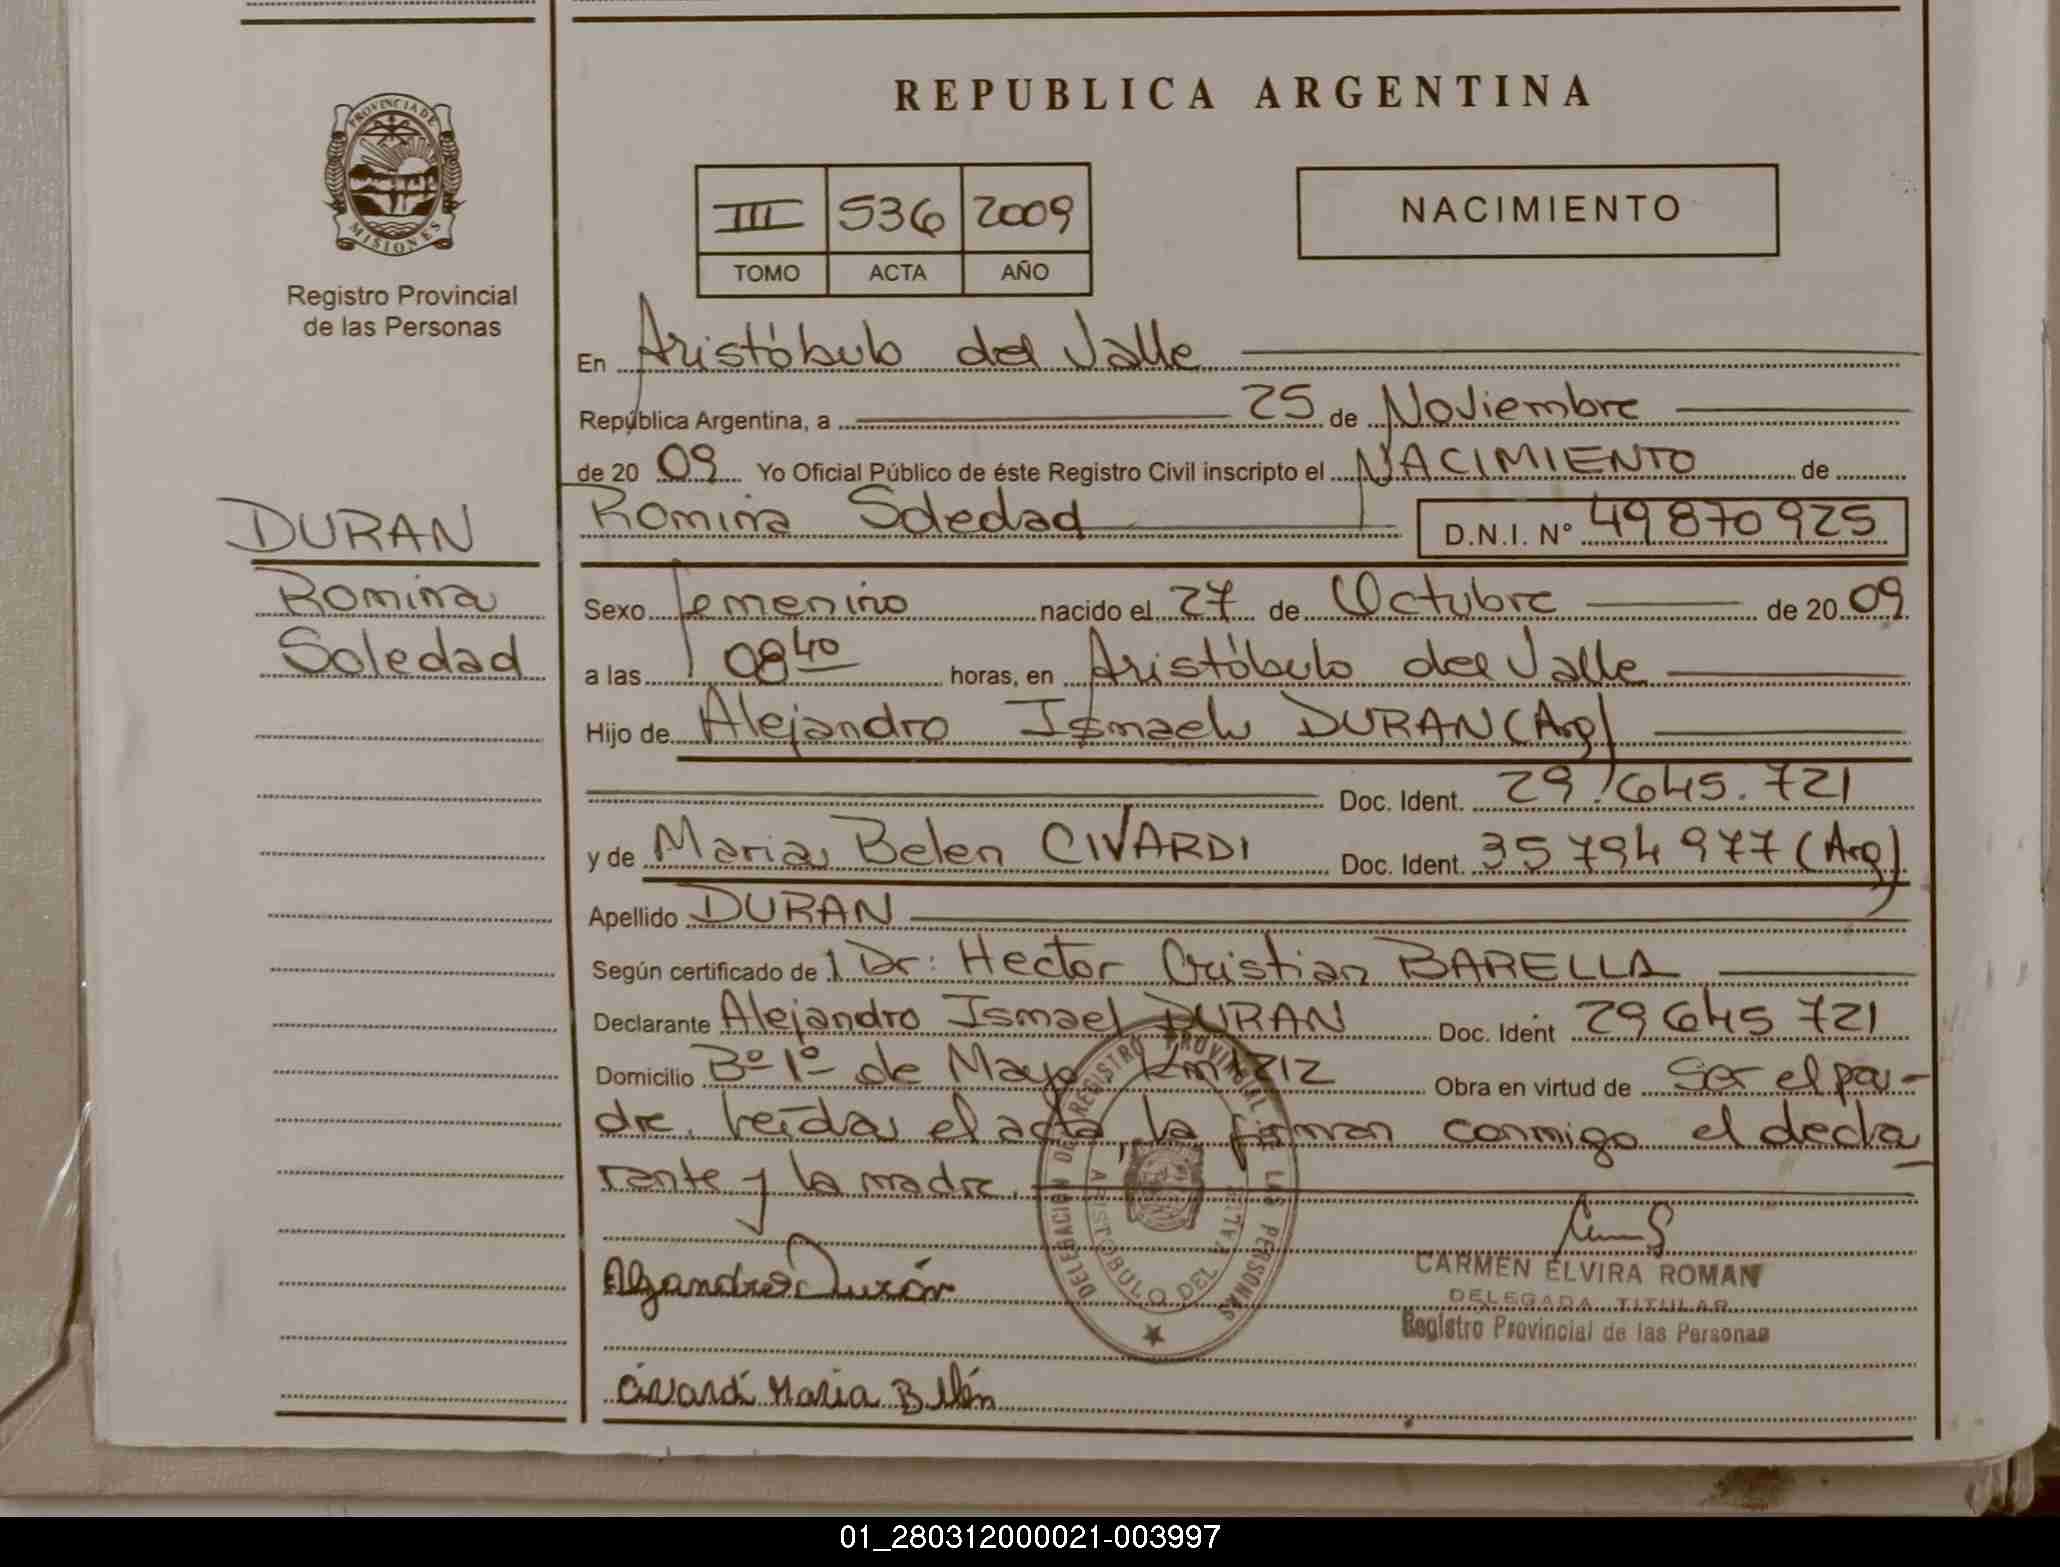 REPUBLICA ARGENTINA
PROVINCIA DE
MISIONES
Registro Provincial
de las Personas
III 536 2009
TOMO ACTA AÑO
NACIMIENTO
En Aristóbulo del Valle
República Argentina, a 25 de Noviembre
de 20 09 Yo Oficial Público de éste Registro Civil inscripto el NACIMIENTO de
DURAN
Romina
Soledad
Romina Soledad D.N.I. N° 49870925
Sexo femenino nacido el 27 de Octubre de 20 09
a las 08 40 horas, en Aristóbulo del Valle
Hijo de Alejandro Ismael DURAN (Arg)
Doc. Ident. 29.645.721
y de Maria Belen CIVARDI Doc. Ident. 35794977 (Arg)
Apellido DURAN
Según certificado de Dr: Hector Cristian BARELLA
Declarante Alejandro Ismael DURAN Doc. Ident 29645721
Domicilio Bº 1º de Mayo Km 1212 Obra en virtud de Ser el pa-
dre. leída el acta, la firman conmigo el decla
rante y la madre.
DELEGACION DE REGISTRO PROVINCIAL DE LAS PERSONAS
ARISTOBULO DEL VALLE
CARMEN ELVIRA ROMAN
DELEGADA TITULAR
Registro Provincial de las Personas
Alejandro Durán
Civardi Maria Belén
01_280312000021-003997